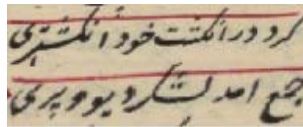 کرد در انگشت خود انگشتری
جمع امد لشکر دیو و پری